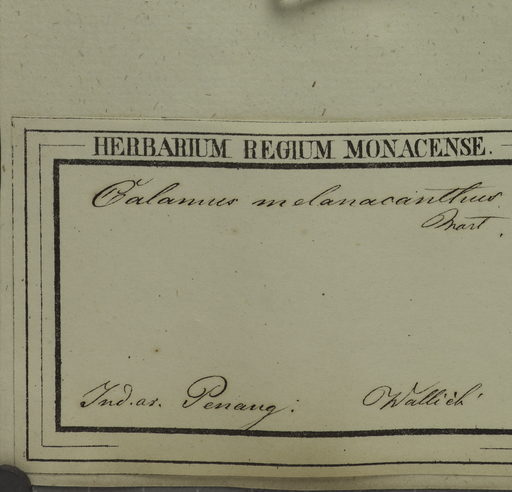 HERBARIUM REGIUM MONACENSE.
Calamus melanacanthus
Mart.
Ind. or. Penang. Wallich